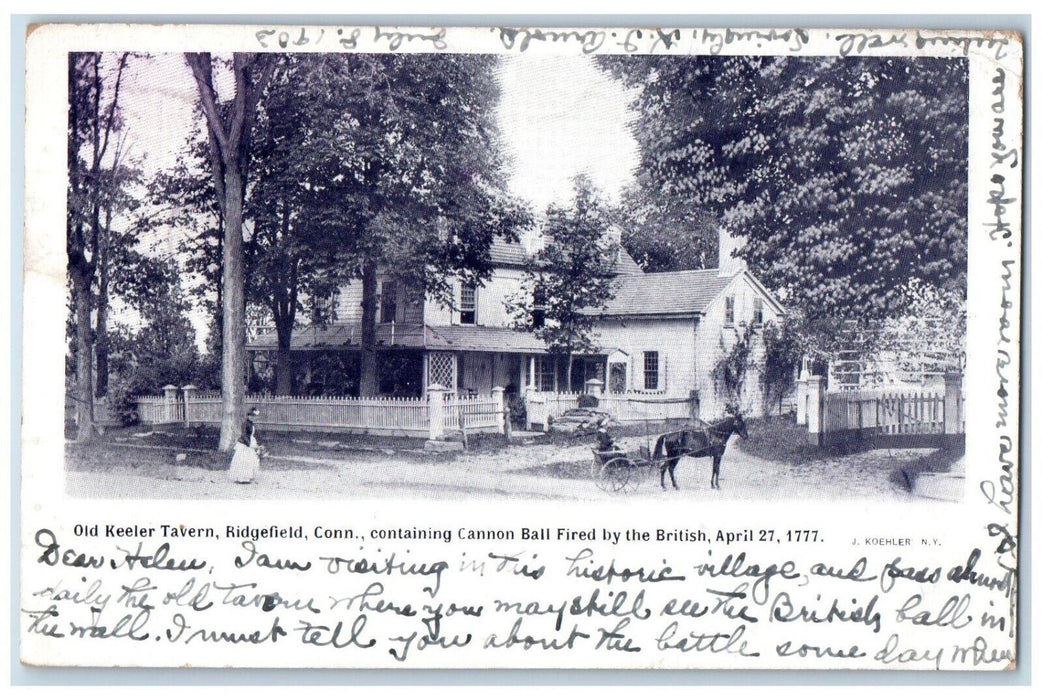 Old Keeler Tavern, Ridgefield, Conn., containing Cannon Ball Fired by the British, April 27, 1777.
J. KOEHLER N.Y.
Dear Helen, I am visiting in this historic village, and pass almost
daily the old tavern where you may still see the British ball in
the wall. I must tell you about the battle some day when
Hope Mama
well. Lovingly, Arnold. July 8.